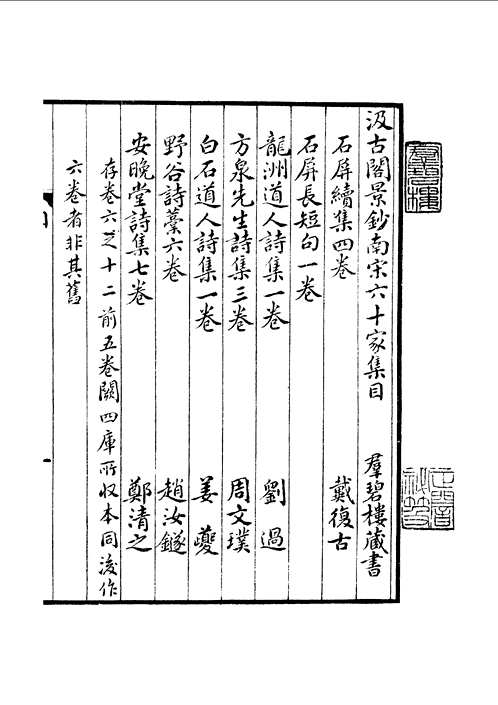 汲古閣景鈔南宋六十家集目 羣碧樓藏書
石屏續集四卷 戴復古
石屏長短句一卷
龍洲道人詩集一卷 劉過
方泉先生詩集三卷 周文璞
白石道人詩集一卷 姜夔
野谷詩藁六卷 趙汝鐩
安晚堂詩集七卷 鄭清之
存卷六之十二前五卷闕四庫所收本同浚作
六卷者非其舊
羣碧樓